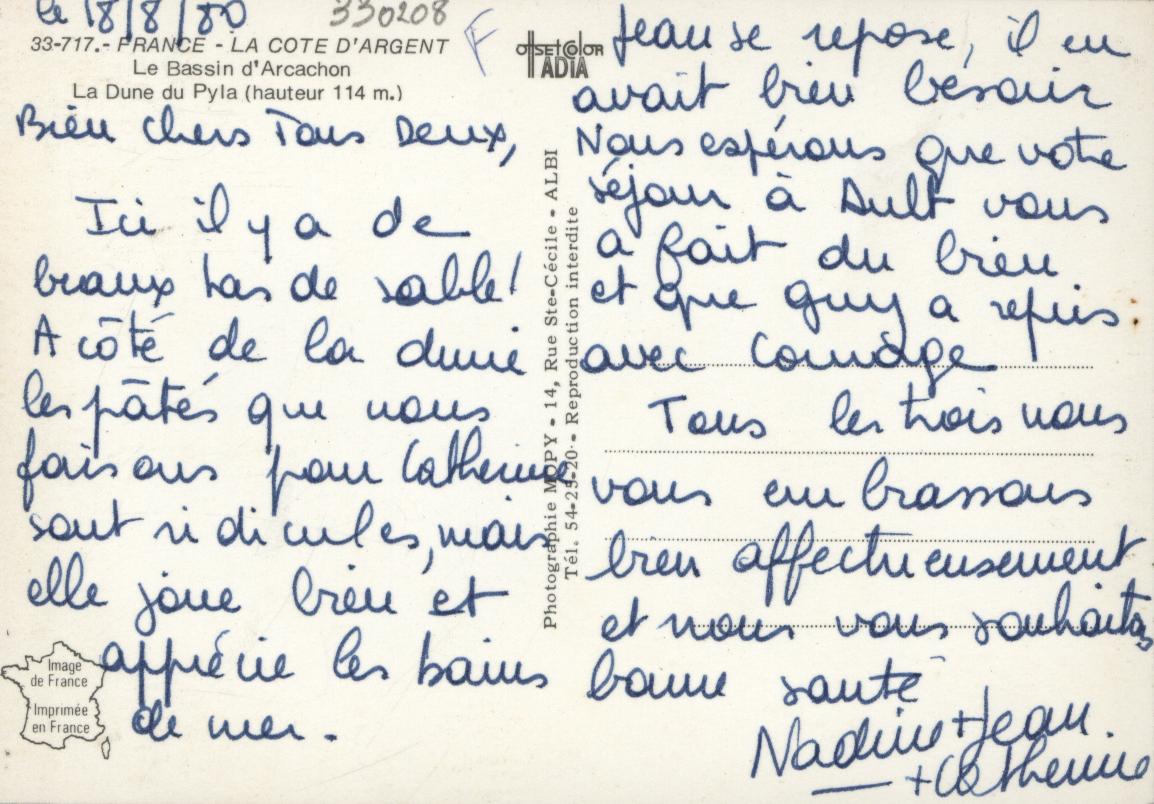 le 18/8/80
330208
33-717.- FRANCE - LA COTE D'ARGENT
Le Bassin d'Arcachon
La Dune du Pyla (hauteur 114 m.)
Bien chers Tous Deux,
Ici il y a de
beaux tas de sable!
A côté de la dune
les pâtés que nous
faisons pour Catherine
sont ridicules, mais
elle joue bien et
apprécie les bains
de mer.
Image
de France
Imprimée
en France
F
OFFSETCOLOR
ADIA
Photographie MOPY - 14, Rue Ste-Cécile - ALBI
Tél. 54-25-20 - Reproduction interdite
Jean se repose, il en
avait bien besoin
Nous espérons que votre
séjour à Ault vous
a fait du bien
et que guy a repris
avec courage
Tous les trois nous
vous embrassons
bien affectueusement
et nous vous souhaitons
bonne santé
Nadine + Jean
+ Catherine